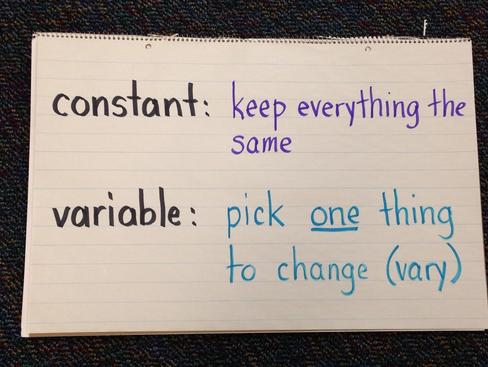 constant: keep everything the
same
variable: pick one thing
to change (vary)